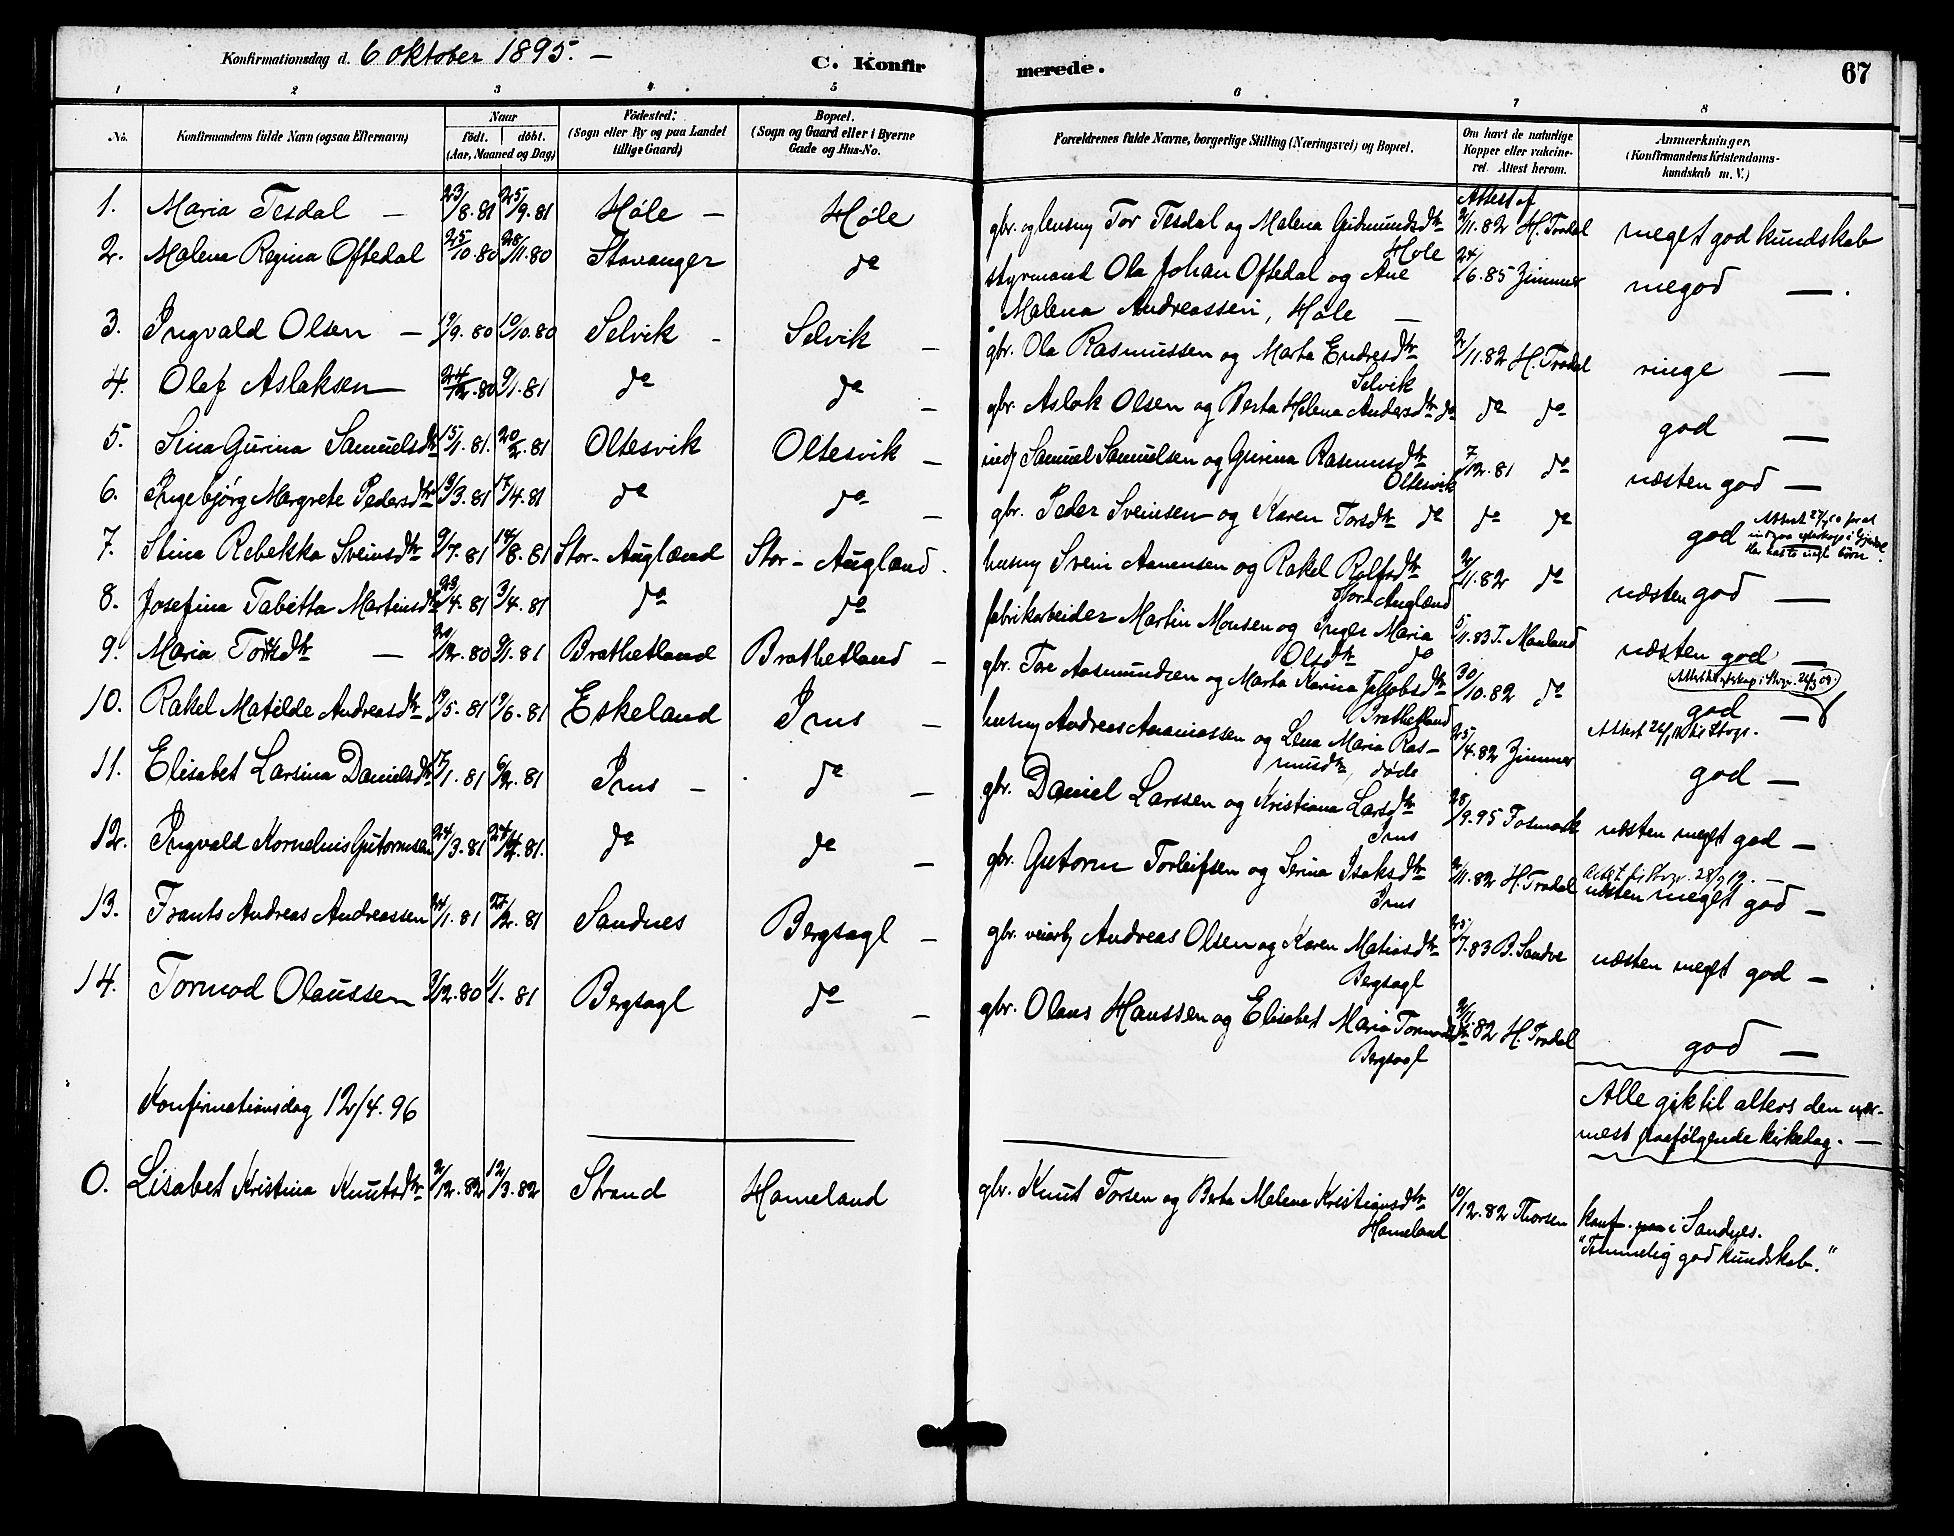 Konfirmationsdag d. 6 oktober 1895. –
C. Konfirmerede.
67
1 2 3 4 5 6 7 8
No.
Konfirmandens fulde Navn (ogsaa Efternavn)
Naar
født. døbt.
(Aar, Maaned og Dag)
Fødested:
(Sogn eller By og paa Landet
tillige Gaard)
Bopæl.
(Sogn og Gaard eller i Byerne
Gade og Hus-No.
Forældrenes fulde Navne, borgerlige Stilling (Næringsvei) og Bopæl.
Om havt de naturlige
Kopper eller vakcine-
ret. Attest herom.
Anmærkninger,
(Konfirmandens Kristendoms-
kundskab m. V.)
1. Maria Tesdal – 23/8.81 25/9.81 Høle – Høle gbr. og lensm Tor Tesdal og Malena Gudmundsdtr Høle Attest af 2/11.82 H. Tradal meget god kundskab
2. Malena Regina Oftedal 25/10.80 28/11.80 Stavanger do styrmand Ola Johan Oftedal og Ane
Malena Andreassen, Høle – 24/6.85 Zimmer megod — .
3. Ingvald Olsen – 19/9.80 10/10.80 Selvik – Selvik – gbr. Ola Rasmussen og Marta Endresdtr
Selvik 2/11.82 H. Tradal ringe —
4. Olaf Aslaksen – 24/12.80 9/1.81 do do – gbr. Aslak Olsen og Berta Helena Andersdtr do do do god —
5. Sina Gurina Samuelsdtr 15/1.81. 20/2.81 Oltesvik Oltesvik – inds Samuel Samuelsen og Gurina Rasmusdtr
Oltesvik 7/12.81 do næsten god —
6. Ingebjørg Margrete Pedersdtr 19/3.81 17/4.81 do do – gbr. Peder Sveinsen og Karen Torsdtr do do do god
7. Stina Rebekka Sveinsdtr 9/7.81 14/8.81 Stor-Auglænd Stor-Auglænd. husm Svein Aanensen og Rakel Rolfsdtr
Stor-Auglænd 2/11.82 do næsten god —
8. Josefina Tabitta Martinsdtr 23/4.81 3/4.81 do do fabrikarbeider Martin Monsen og Inger Maria
Olsdtr do 5/11.83 T. Nauland næsten god —
9. Maria Toresdtr – 20/12.80 9/1.81 Brathetland Brathetland – gbr. Tore Aasmundsen og Marta Karina Jakobsdtr
Brathetland 30/10.82 do god —
10. Rakel Matilde Andreasdtr 19/5.81 19/6.81 Eskeland Ims – husm Andreas Ananiassen og Lena Maria Ras-
musdtr, døde 25/4.82 Zimmer god —
11. Elisabet Larsina Danielsdtr 17/1.81 6/2.81 Ims – do – gbr. Daniel Larssen og Kristiana Larsdtr
Ims 28/9.95 Fosmark næsten meget god —
12. Ingvald Kornelius Gutormsen 24/3.81 24/4.81. do do – gbr. Gutorm Torleifsen og Serina Isaksdtr
Ims 2/11.82 H. Tradal næsten meget god —
13. Frants Andreas Andreassen 24/1.81 27/2.81 Sandnes Bergsagl – gbr. veiarb Andreas Olsen og Karen Matiasdtr
Bergsagl 25/7.83 B. Sandve næsten meget god —
14. Tormod Olaussen 3/12.80 1/1.81 Bergsagl do – gbr. Olaus Hanssen og Elisabet Maria Tormodsdtr
Bergsagl 2/11.82 H. Tradal god —
Alle gik til alters den nær-
mest paafølgende kirkedag. —
Konfirmationsdag 12/4.96
0. Lisabet Kristina Knutsdtr 2/12.82 12/3.82 Strand Hameland gbr. Knut Torsen og Berta Malena Kristiansdtr
Hameland 19/12.82 Thorsen konf. i Sandnes.
"Temmelig god kundskab."